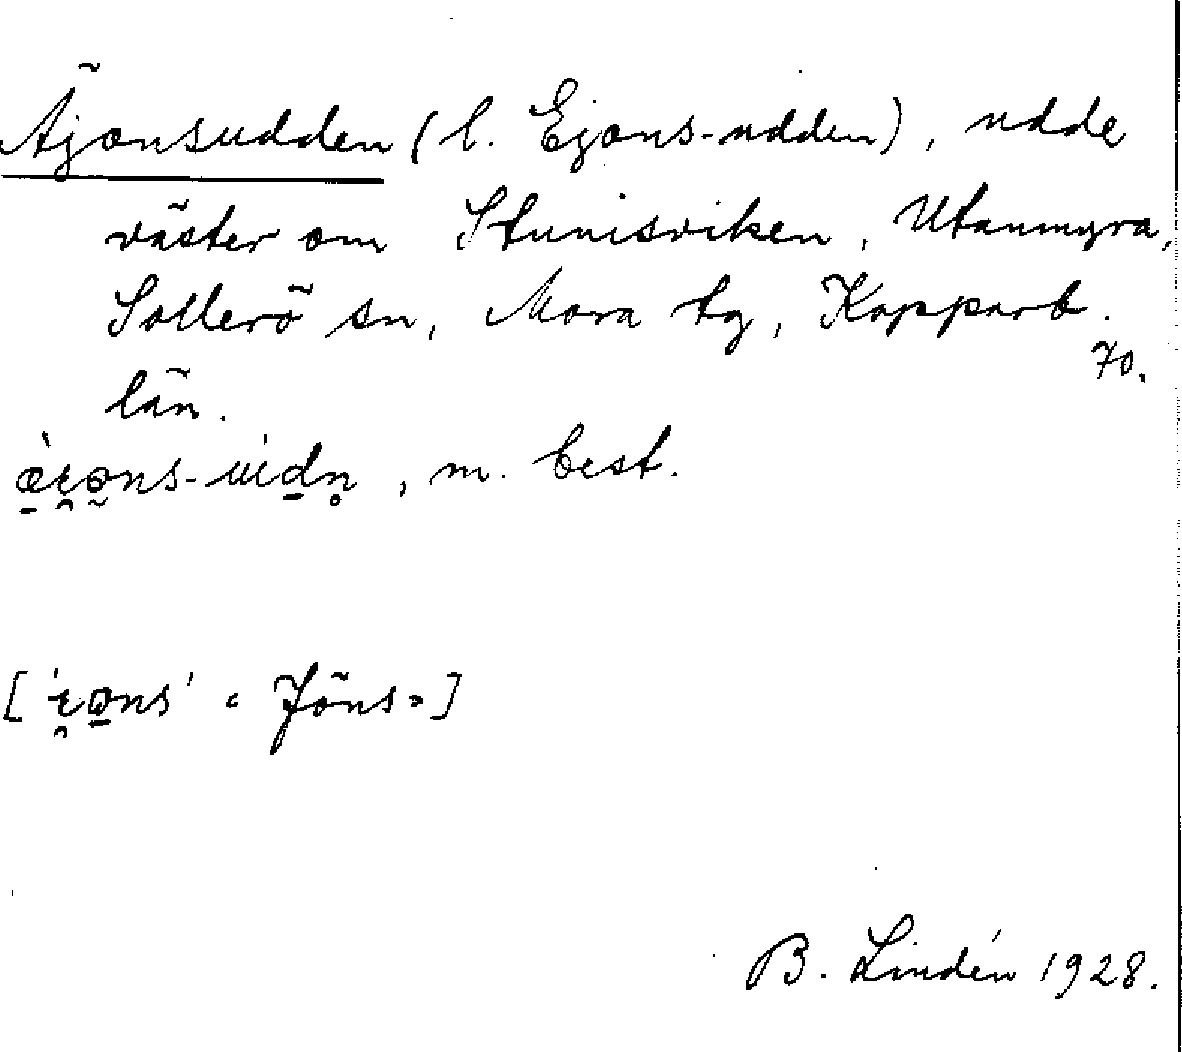 Äjonsudden (l. Ejons-udden), udde
väster om Stunisviken, Utanmyra,
Sollerö sn, Mora tg, Kopparb.
70.
län.
, m. best.
[ « Jöns»]
B. Lindén 1928.